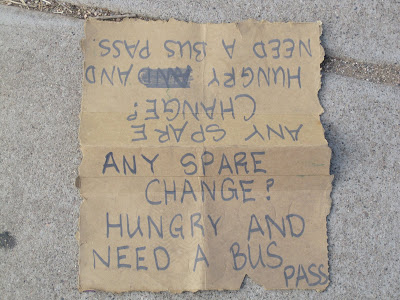 ANY SPARE
CHANGE?
HUNGRY AND
NEED A BUS PASS.
ANY SPARE
CHANGE?
HUNGRY AND
NEED A BUS
PASS